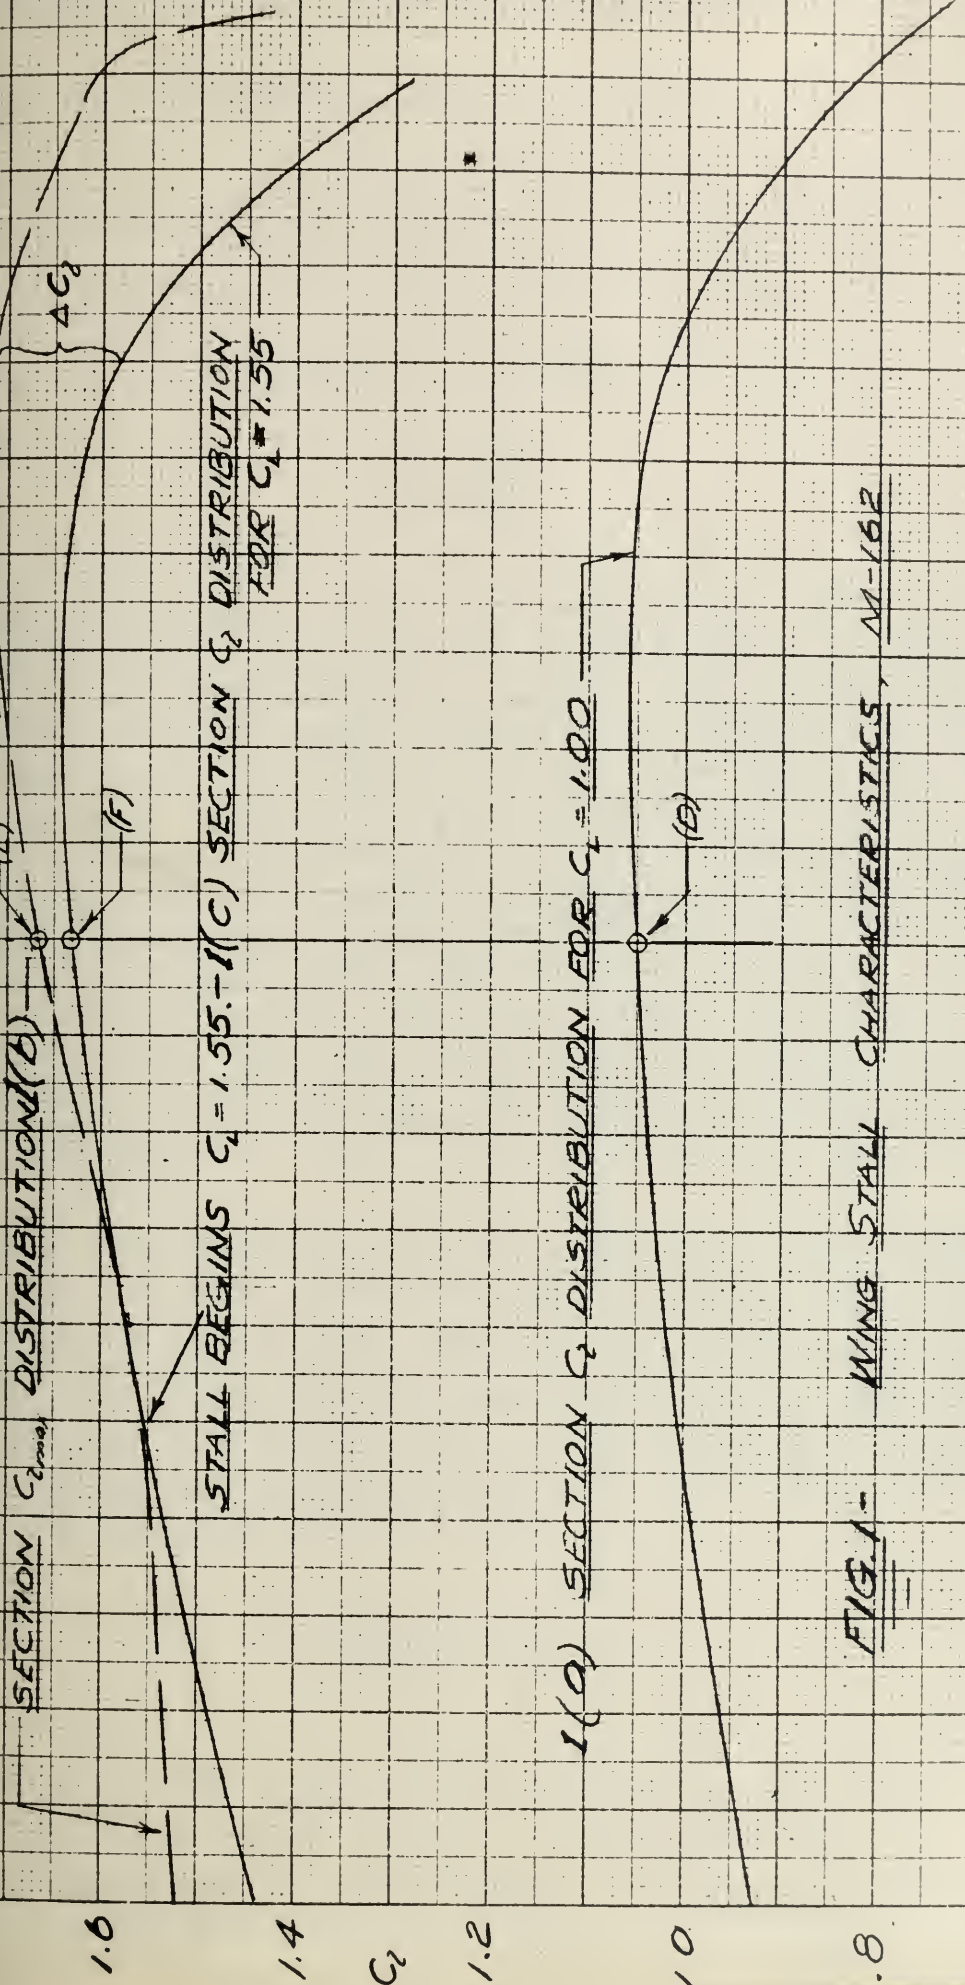 ΔC₂
SECTION C₂max DISTRIBUTION 1(b)
(F)
1.6
STALL BEGINS C_L = 1.55. - 1(C) SECTION C₂ DISTRIBUTION
FOR C_L = 1.55
1.4
C₂
1.2
1(a) SECTION C₂ DISTRIBUTION FOR C_L = 1.00
1.0
(D)
.8
FIG. 1 - WING STALL CHARACTERISTICS, M-162